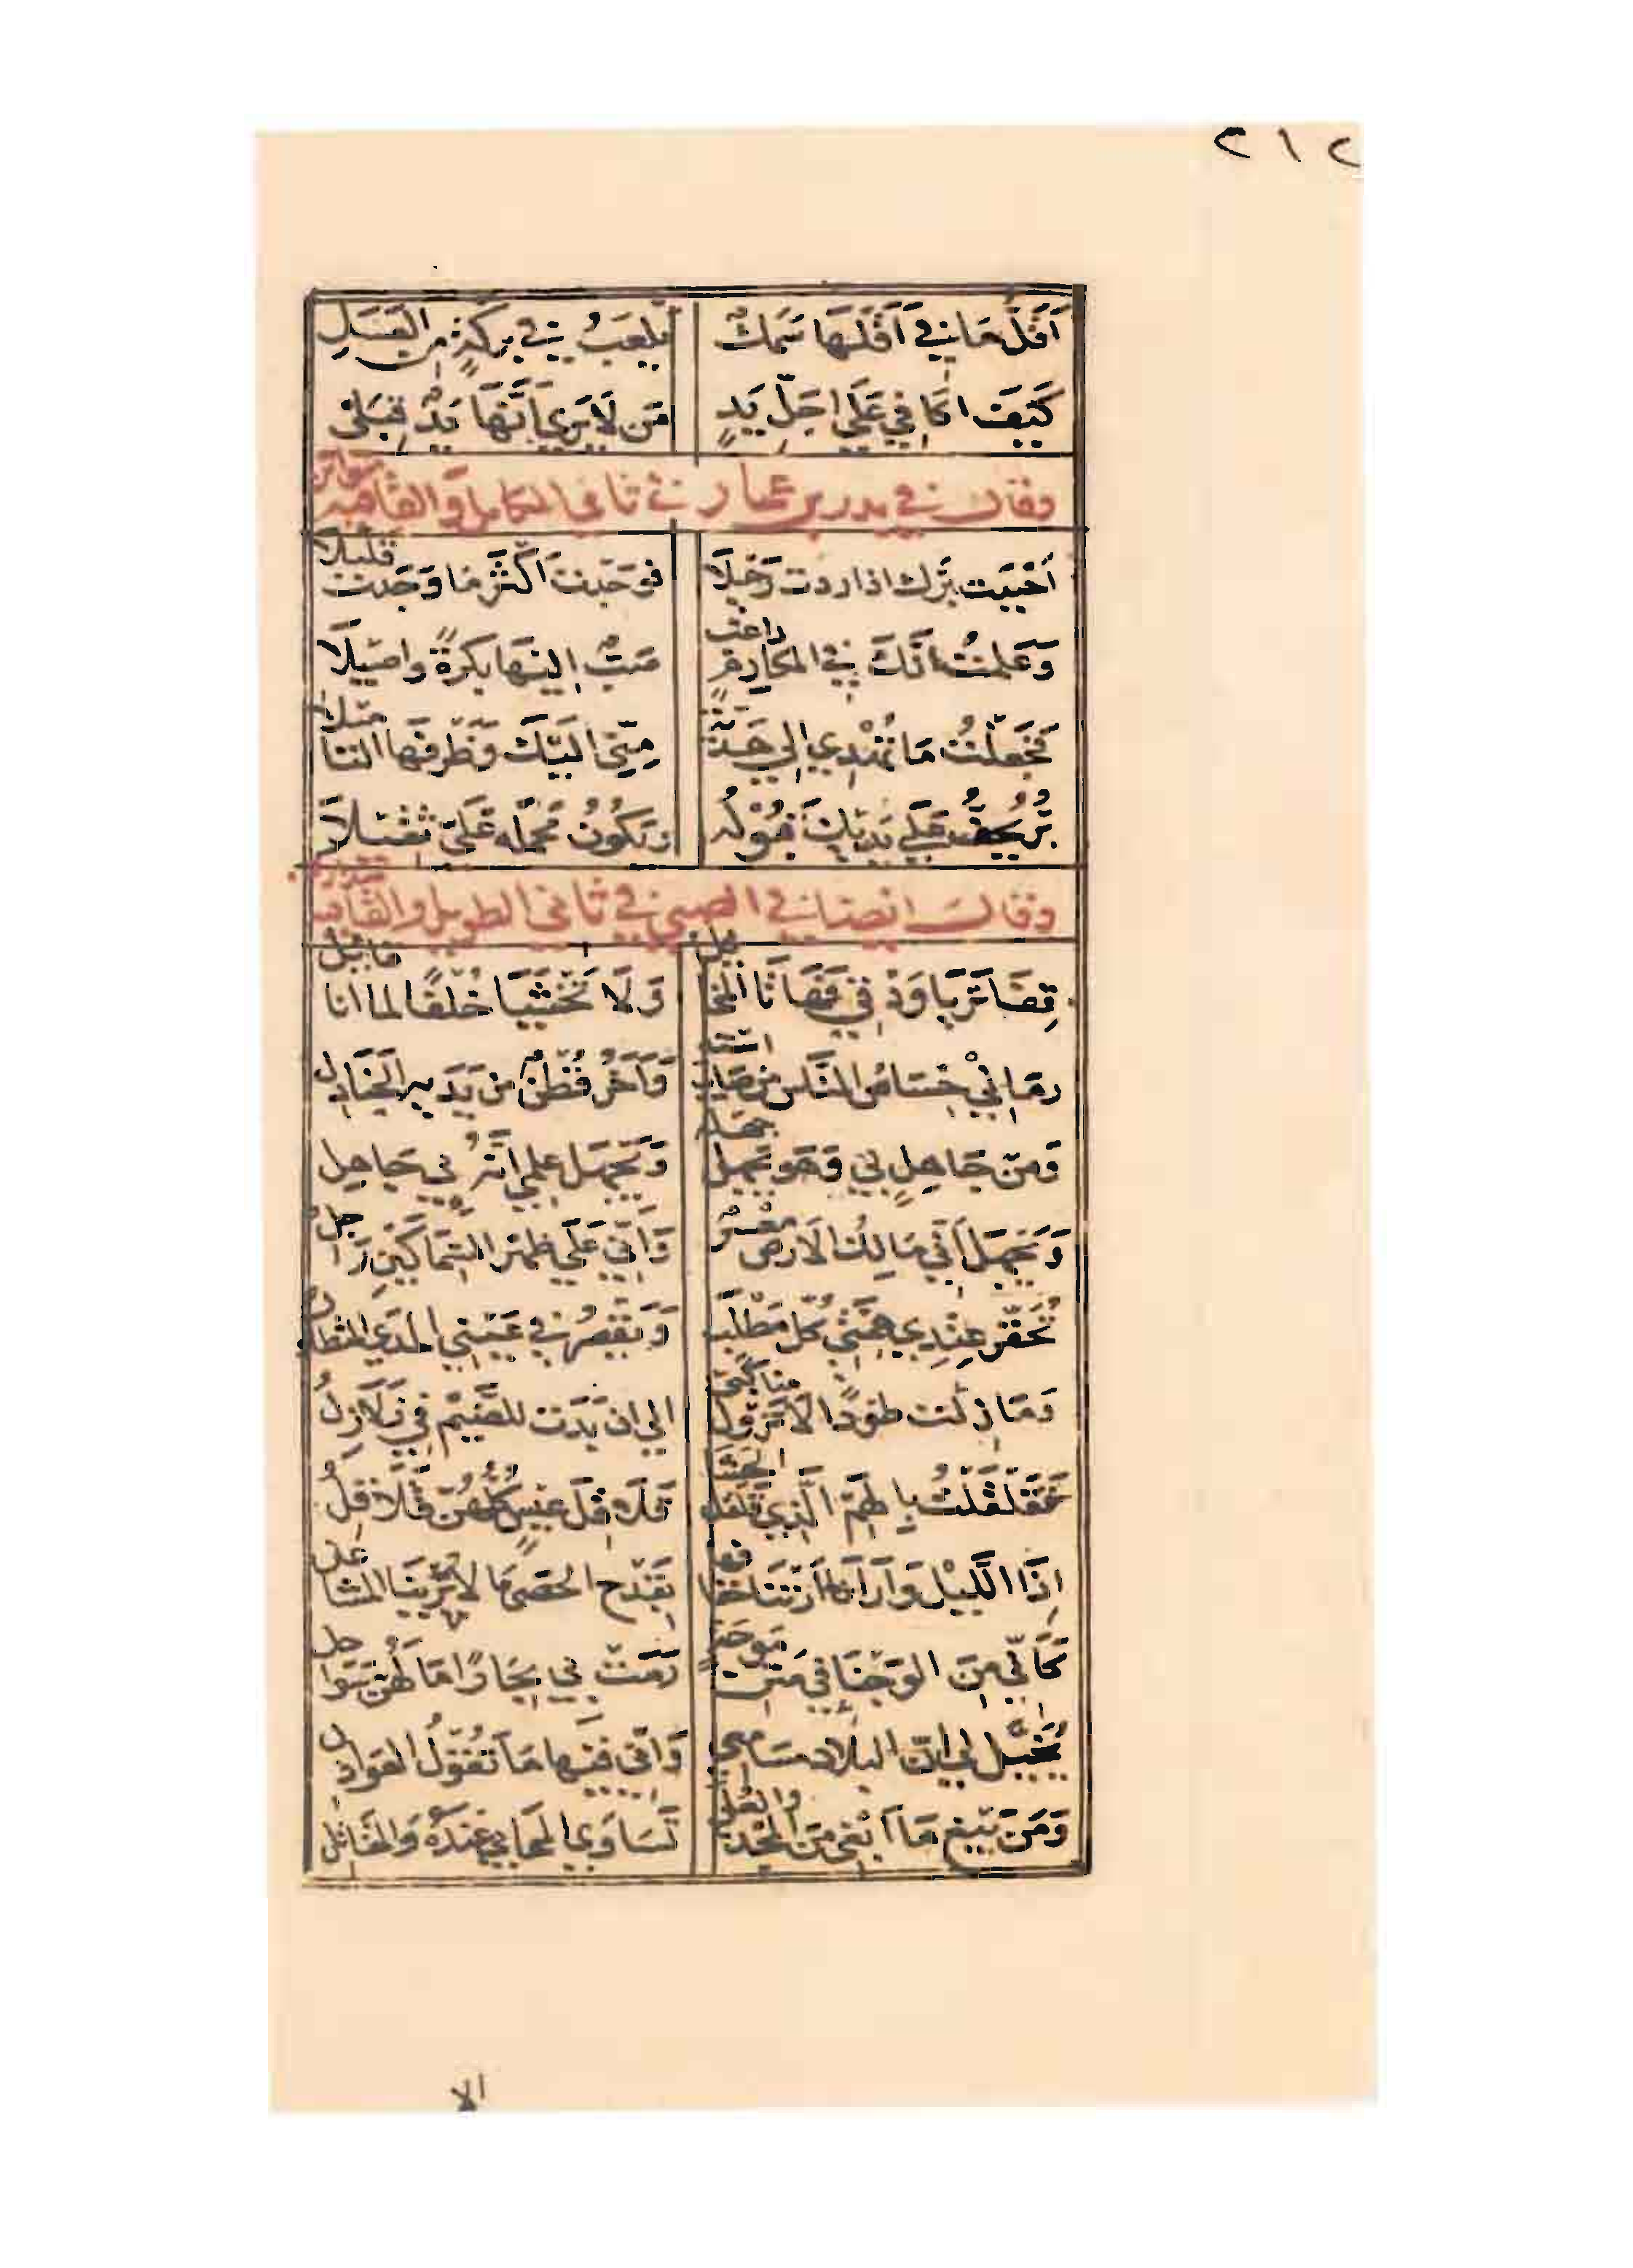 ٢١٢
أقل ما في أقلها سمك يلعب في بركة من العسل
كيف اكافي علي اجل يد من لا يري أنها يد قبلي
وقال في بدر بن عمار في ثاني الكامل والقافية متواتر
أحببت برك اذا اردت رحيلا فوجدت أكثر ما وجدت قليلا
وعلمت أنك في المكارم راغب صب إليها بكرة واصيلا
فجعلت ما تهدي إلي هدية مني اليك وظرفها التأميلا
بر يخف علي يديك قبوله ويكون محمله علي ثقيلا
وقال ايضا في الصبي في ثاني الطويل والقافية متدارك
قفا تريا ودقي فهاتا المخايل ولا تخشيا خلفا لما انا قايل
رماني خساس الناس من صايب استه وآخر قطن من يديه الجنادل
ومن جاهل بي وهو يجهل جهله ويجهل علمي أنه بي جاهل
ويجهل أني مالك الارض معسر وأني علي ظهر السماكين راجل
تحقر عندي همتي كل مطلب ويقصر في عيني المدي المتطاول
وما زلت طودا لا تزول مناكبي الي ان بدت للضيم في زلازل
فقلقلت بالهم الذي قلقل الحشا قلاقل عيس كلهن قلاقل
إذا الليل وارانا أرتنا خفافها بقدح الحصي ما لا ترينا المشاعل
كأني من الوجنا في متن موجة رمت بي بحارا ما لهن سواحل
يخيل لي ان البلاد مسامعي وأني فيها ما تقول العواذل
ومن يبغ ما أبغي من المجد والعلي تساوي المحايي عنده والمقاتل
الا